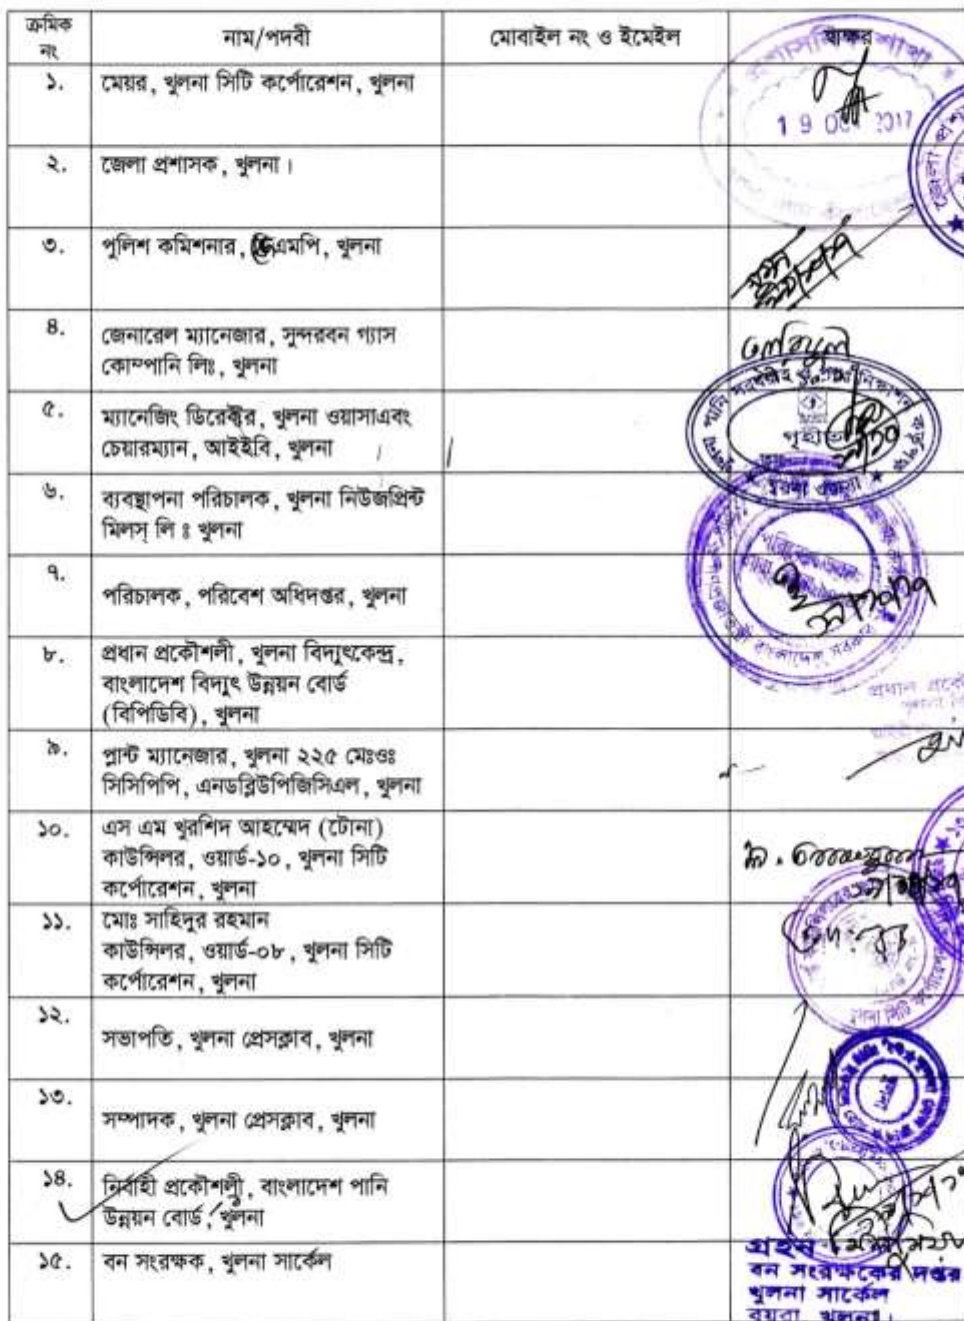 ক্রমিক নং
নাম/পদবী
মোবাইল নং ও ইমেইল
স্বাক্ষর
১.
মেয়র, খুলনা সিটি কর্পোরেশন, খুলনা
19 OCT 2017
২.
জেলা প্রশাসক, খুলনা।
৩.
পুলিশ কমিশনার, কেএমপি, খুলনা
৪.
জেনারেল ম্যানেজার, সুন্দরবন গ্যাস
কোম্পানি লিঃ, খুলনা
৫.
ম্যানেজিং ডিরেক্টর, খুলনা ওয়াসাএবং
চেয়ারম্যান, আইইবি, খুলনা
গৃহীত
৬.
ব্যবস্থাপনা পরিচালক, খুলনা নিউজপ্রিন্ট
মিলস্ লি ঃ খুলনা
৭.
পরিচালক, পরিবেশ অধিদপ্তর, খুলনা
৮.
প্রধান প্রকৌশলী, খুলনা বিদ্যুৎকেন্দ্র,
বাংলাদেশ বিদ্যুৎ উন্নয়ন বোর্ড
(বিপিডিবি), খুলনা
৯.
প্লান্ট ম্যানেজার, খুলনা ২২৫ মেঃওঃ
সিসিপিপি, এনডব্লিউপিজিসিএল, খুলনা
১০.
এস এম খুরশিদ আহম্মেদ (টোনা)
কাউন্সিলর, ওয়ার্ড-১০, খুলনা সিটি
কর্পোরেশন, খুলনা
১১.
মোঃ সাহিদুর রহমান
কাউন্সিলর, ওয়ার্ড-০৮, খুলনা সিটি
কর্পোরেশন, খুলনা
১২.
সভাপতি, খুলনা প্রেসক্লাব, খুলনা
১৩.
সম্পাদক, খুলনা প্রেসক্লাব, খুলনা
১৪.
নির্বাহী প্রকৌশলী, বাংলাদেশ পানি
উন্নয়ন বোর্ড, খুলনা
১৫.
বন সংরক্ষক, খুলনা সার্কেল
গ্রহন
বন সংরক্ষকের দপ্তর
খুলনা সার্কেল
বয়রা খুলনা।